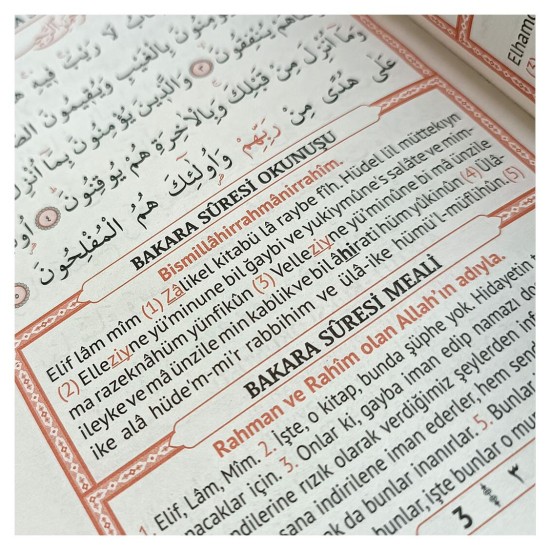 لَا رَيْبَ فِيهِ
يُؤْمِنُونَ بِالْغَيْبِ وَيُقِيمُونَ
هُمْ يُنْفِقُونَ ٣ وَالَّذِينَ يُؤْمِنُونَ بِمَا اُنْزِلَ
وَمَا اُنْزِلَ مِنْ قَبْلِكَ وَبِالْاٰخِرَةِ هُمْ يُوقِنُونَ ٤
عَلٰى هُدًى مِنْ رَبِّهِمْ وَاُولٰٓئِكَ هُمُ الْمُفْلِحُونَ
BAKARA SÛRESİ OKUNUŞU
Bismillâhirrahmânirrahîm.
Elif lâm mîm (1) Zâlikel kitabü lâ raybe fîh. Hüdel lil müttekıyn
(2) Elleziyne yü'minune bil ğaybi ve yukiymûne's salâte ve mim-
ma razeknâhüm yünfikûn (3) Velleziyne yü'minûne bi mâ ünzile
ileyke ve mâ ünzile min kablik ve bil âhirati hüm yûkinûn (4) Ülâ-
ike alâ hüde'm-mi'r rabbihim ve ülâ-ike hümü'l-müflihûn. (5)
BAKARA SÛRESİ MEALİ
Rahman ve Rahîm olan Allah'ın adıyla.
1. Elif, Lâm, Mîm. 2. İşte, o kitap, bunda şüphe yok. Hidayetin
nacaklar için. 3. Onlar ki, gayba iman edip namazı
ndilerine rızık olarak verdiğimiz şeylerden
sana indirilene iman ederler, hem
ak da bunlar inanırlar. 5. Bunlar
bunlar, işte bunlar o
3 ٣
Elham
(2)